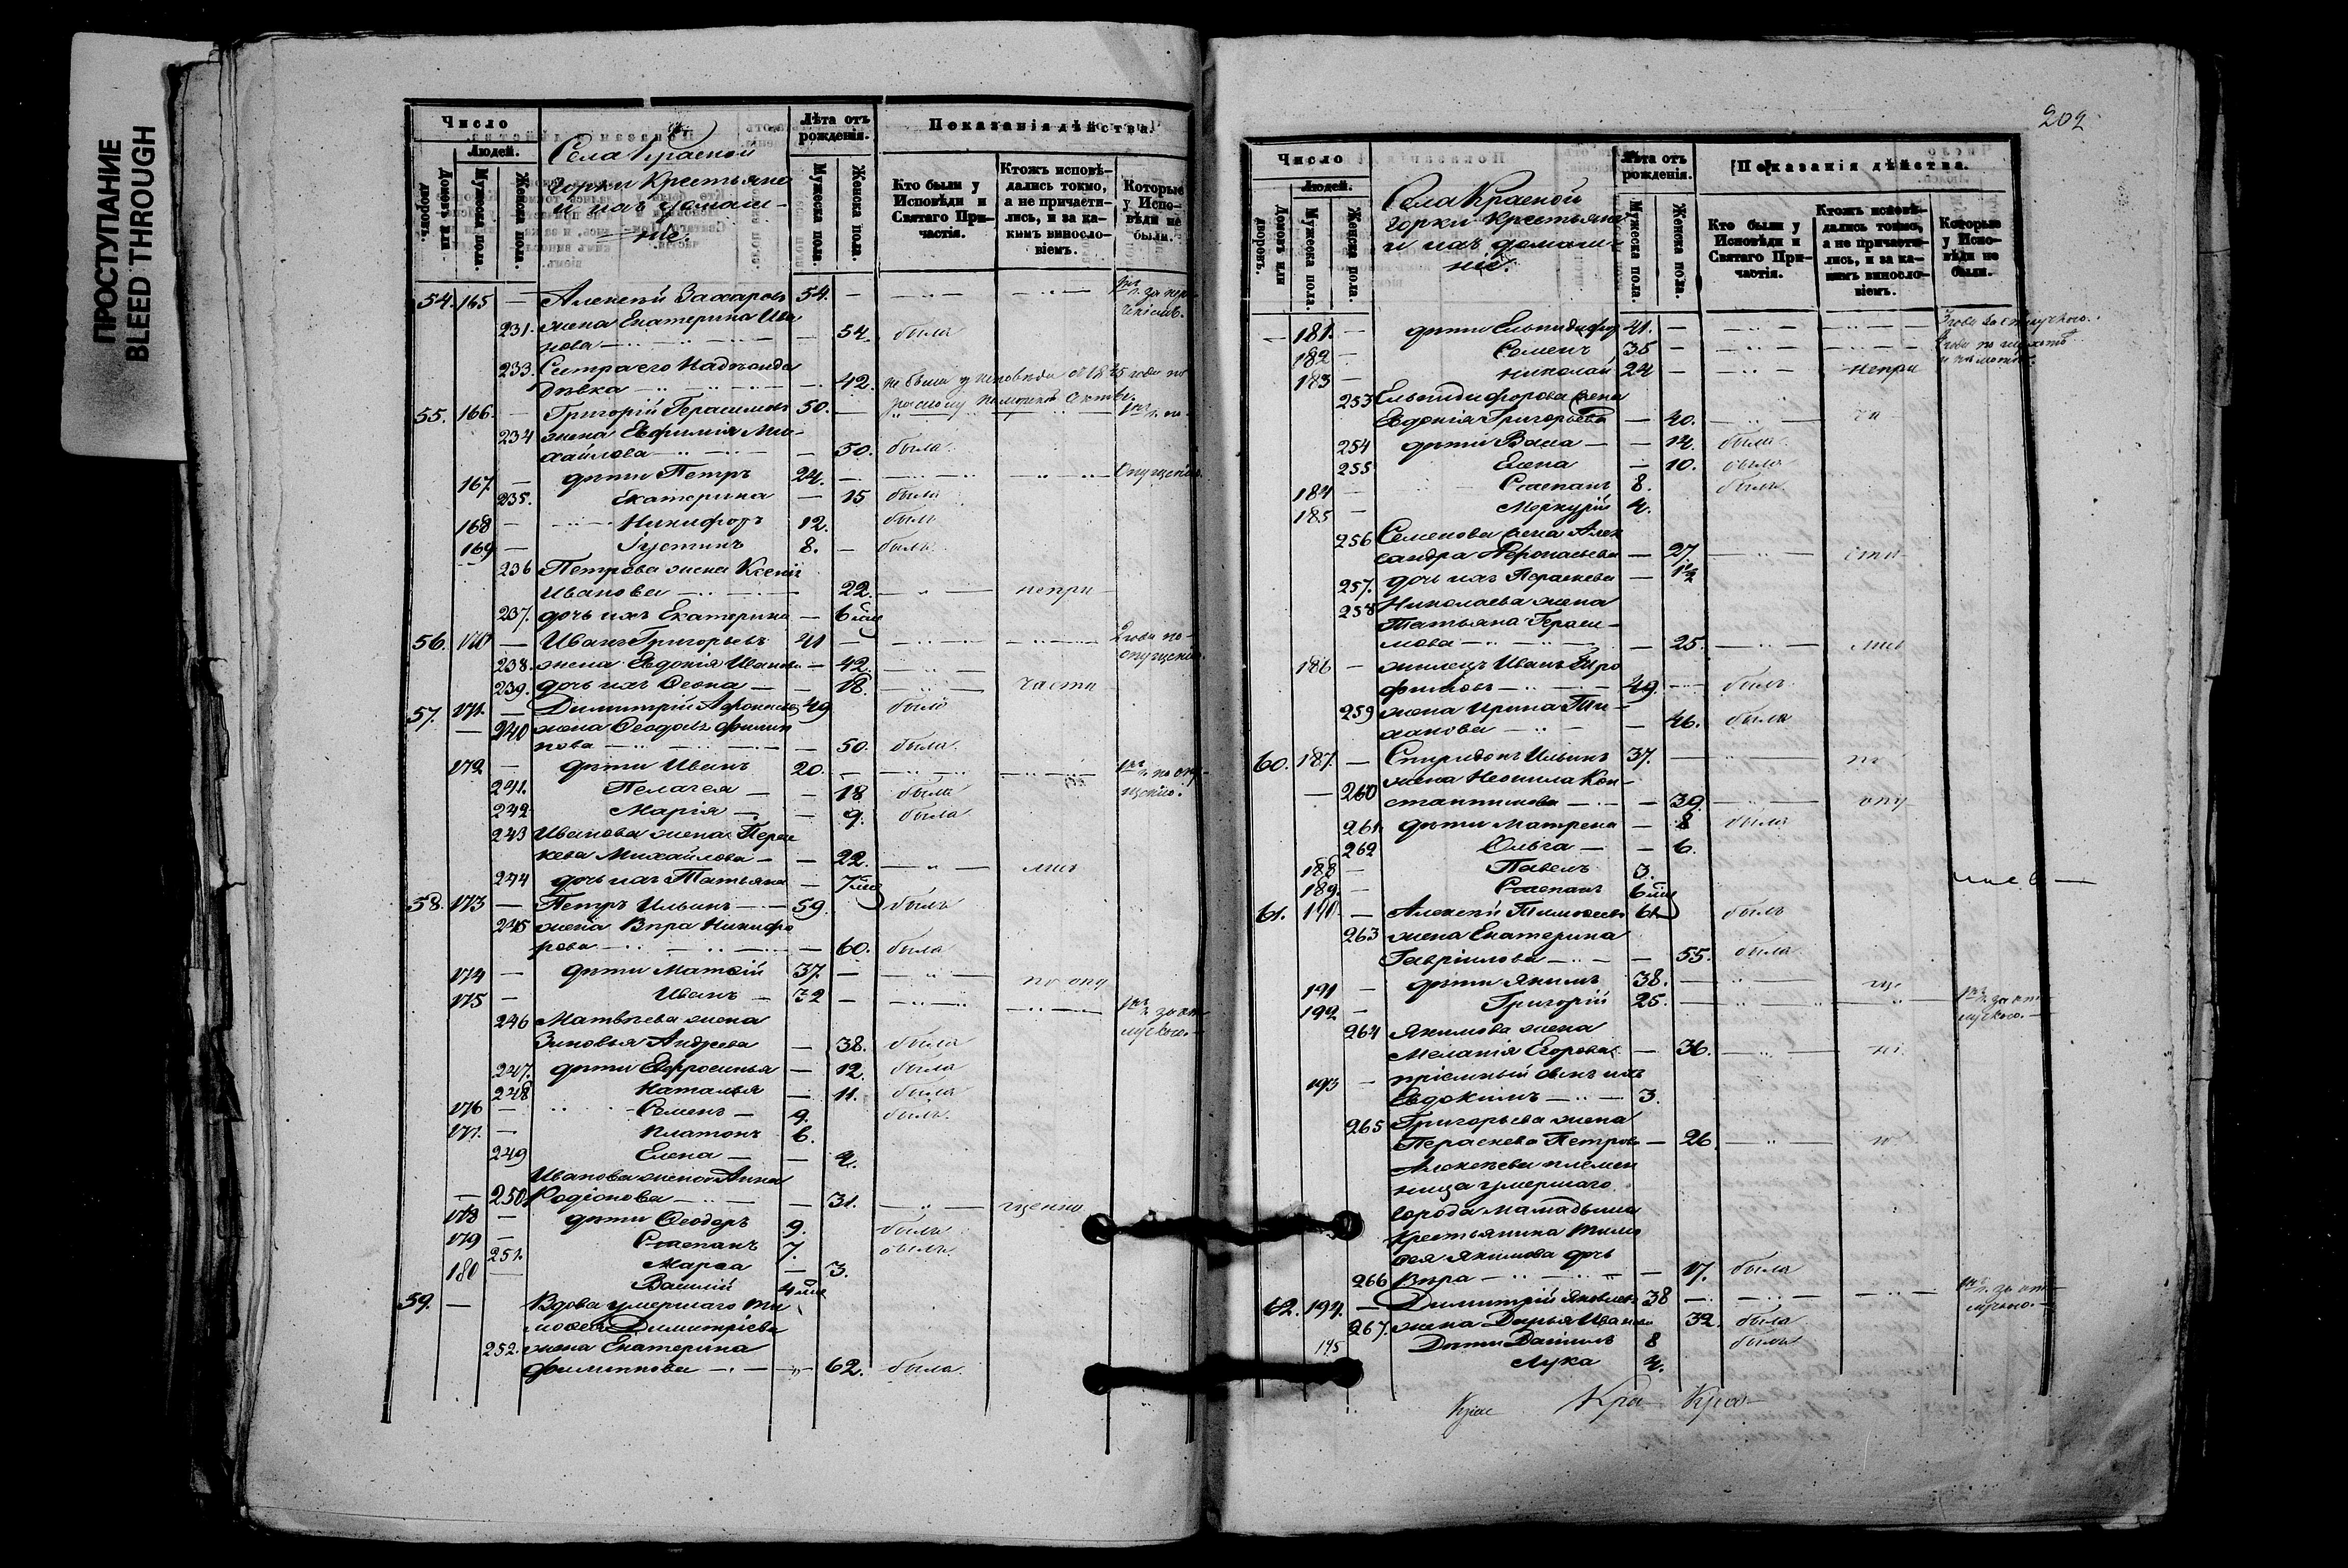 ПРОСТУПАНИЕ
BLEED THROUGH
Число
Людей.
Домовъ или дворовъ.
Мужеска пола.
Женска пола.
Села Красной
Горки Крестьяне
и ихъ домаш-
ніе.
Лѣта отъ рожденія.
Мужеска пола.
Женска пола.
Показанія дѣйства.
Кто были у Исповѣди и Святаго Причастія.
Ктожъ исповѣ-
дались токмо,
а не причасти-
лись, и за ка-
кимъ винosло-
віемъ.
Которые
у Испо-
вѣди не
были.
54. 165 — Алексѣй Захаровъ 54. —
231. жена Екатерина Ива
нова — 54. была
233. Сестра его Надежда
дѣвка — 42.
55. 166. — Григорій Герасимовъ 50. —
234 жена Евфимія Ми-
хайлова — 50. была
167. — дѣти Петръ 24. — опущенію.
235. Екатерина — 15 была
168 — Никифоръ 12. былъ
169 — Іустинъ 8. — былъ
236 Петрова жена Ксенія
Иванова 22. — непри
237. дочь ихъ Екатерина — 6 мѣс
56. 170 — Иванъ Григорьевъ 41 — 2 года по
238. жена Евдокія Иванова — 42. опущенію.
239. дочь ихъ Ѳеона — 18. части
57. 171. — Димитрій Аѳонасьев 49 былъ
240 жена Ѳеодосья Филип
пова — 50. была
172 — дѣти Иванъ 20. — по опу-
241. Пелагея — 18 была щенію.
242 Марія — 9. была
243 Иванова жена Парас
кева Михайлова — 22. — лись
244 дочь ихъ Татьяна — 7 мѣс
58. 173 — Петръ Ильинъ — 59 былъ
245 жена Вѣра Никифо
рова — 60. была
174 — дѣти Матѳій 37 — по опу
175 — Иванъ — 32 —
246 Матвѣева жена
Зиновья Андреева — 38. была
247. дѣти Евфросинья — 12. была
248 Наталья — 11. была
176 — Семенъ — 9. былъ
177. — Платонъ 6.
249 Елена — 4.
Иванова жена Анна
— 250 Родіонова — 31. — щенію
178 — дѣти Ѳеодоръ 9. былъ
179 — Степанъ 7. былъ
251. Марѳа — 3.
180 — Василій 4 мѣс
59. — Вдова умершаго Ти
моѳея Димитріева
252. жена Екатерина
Филиппова — 62. была
202
Число
Людей.
Домовъ или дворовъ.
Мужеска пола.
Женска пола.
Села Красной
Горки Крестьяне
и ихъ домаш-
ніе.
Лѣта отъ рожденія.
Мужеска пола.
Женска пола.
Показанія дѣйства.
Кто были у Исповѣди и Святаго Причастія.
Ктожъ исповѣ-
дались токмо,
а не причасти-
лись, и за ка-
кимъ винosло-
віемъ.
Которые
у Испо-
вѣди не
были.
— 181. — дѣти Елпидифор 41. — 3 года за отлучкою.
182 — Семенъ 35 —
183 — Николай 24 — непри
253 Елпидифорова жена
Евдокія Григорьева — 40. — ча
254 дѣти Васса — 14. была
255 Елена — 10. была
184 — Степанъ 8. былъ
185 — Меркурій 4.
256 Семенова жена Алек
сандра Аѳонасьева — 27 — сти
257. дочь ихъ Параскева — 1½
258 Николаева жена
Татьяна Гераси-
мова — 25. — лись
186 — жилецъ Иванъ Тро
фимовъ — 49. былъ
259 жена Ирина Ти-
ханова — 46. была
60. 187. — Спиридонъ Ильинъ 37. — по
— 260 жена Неонила Кон-
стантинова — 39. — опу
261. дѣти Матрена — 8 была
262 Ольга — 6.
188 — Павелъ 3.
189. — Степанъ 6 мѣс
61. 190 — Алексѣй Тимоѳеевъ 61 былъ
263 жена Екатерина
Гавріилова — 55. была
191 — дѣти Якимъ 38. — ще
192 — Григорій 25. — за от-
лучкою.
264 Якимова жена
Меланія Егорова — 36. — ні
193 — пріемный сынъ ихъ
Евдокимъ — 3.
265 Григорьева жена
Параскева Петрова — 26 — ю
Алексѣева племен
ница умершаго
города Мамадыша
Крестьянина Тимо
ѳея Якимова дочь
266 Вѣра — 17. была
62. 194. — Димитрій Яковлевъ 38 — за от-
267. жена Дарья Иванова 32. была
195 Дѣти Даніилъ 8 былъ
Лука 4.
Крас Кра Крас